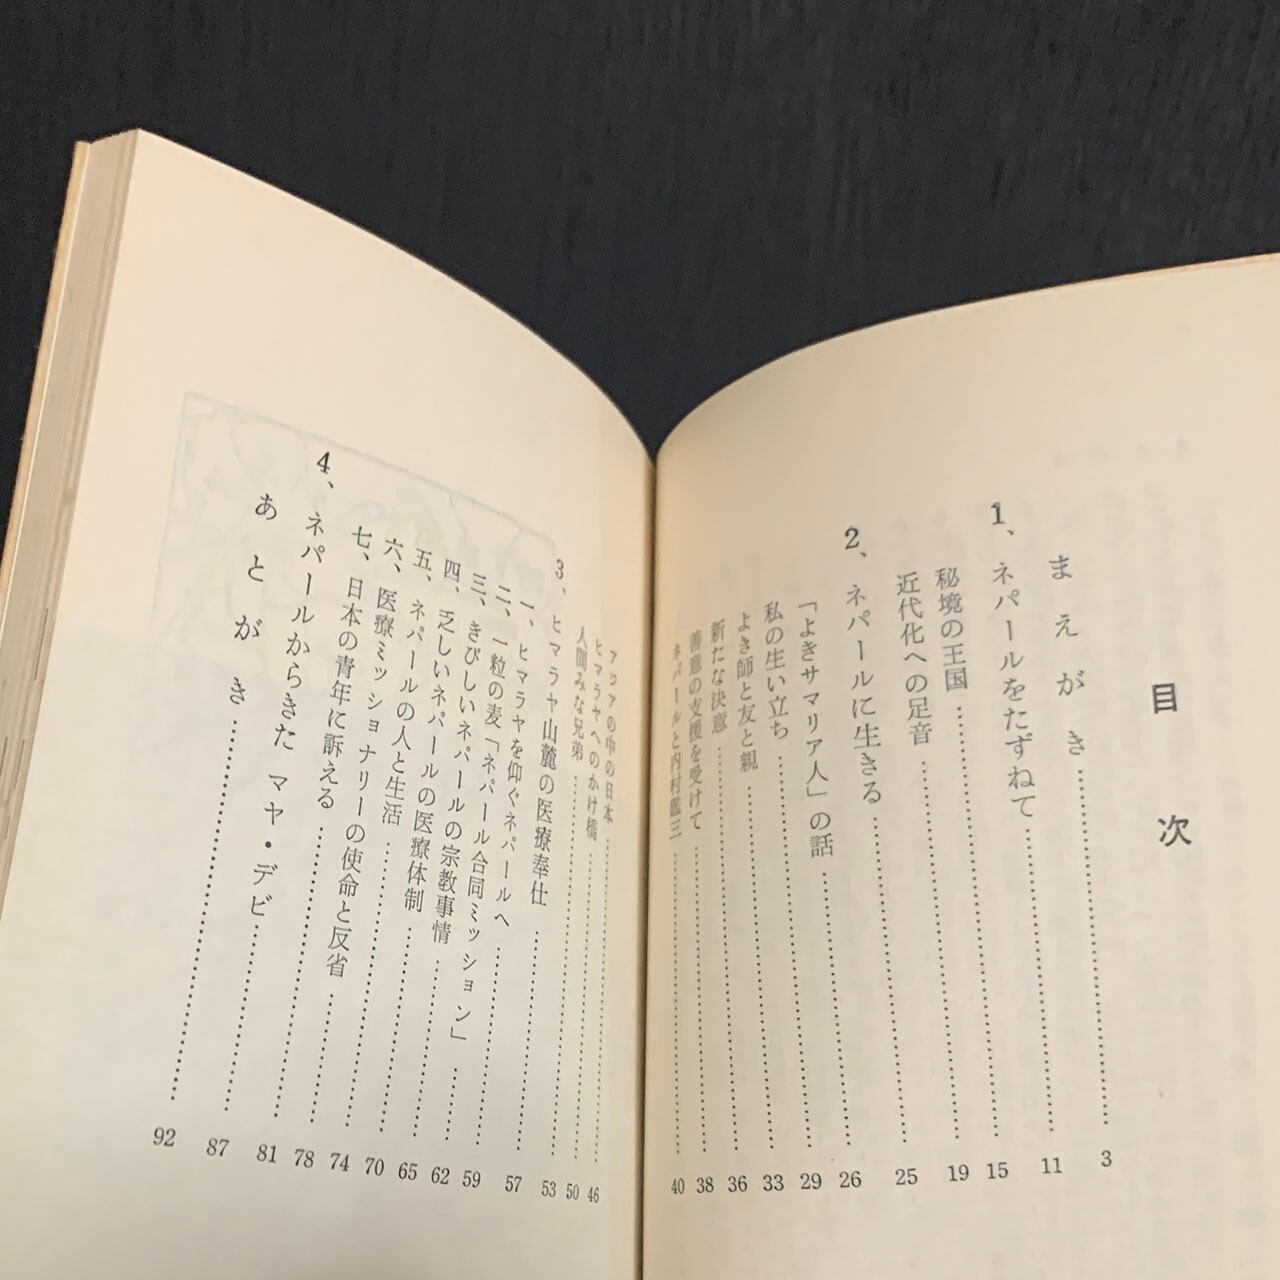 目次
まえがき……………3
1、ネパールをたずねて……………11
秘境の王国……………15
近代化への足音……………19
2、ネパールに生きる……………25
「よきサマリア人」の話……………26
私の生い立ち……………29
よき師と友と親……………33
新たな決意……………36
善意の支援を受けて……………38
ネパールと内村鑑三……………40
アジアの中の日本……………46
ヒマラヤへのかけ橋……………50
人間みな兄弟……………53
3、ヒマラヤ山麓の医療奉仕……………57
一、ヒマラヤを仰ぐネパールへ……………59
二、一粒の麦「ネパール合同ミッション」……………62
三、きびしいネパールの宗教事情……………65
四、乏しいネパールの医療体制……………70
五、ネパールの人と生活……………74
六、医療ミッショナリーの使命と反省……………78
七、日本の青年に訴える……………81
4、ネパールからきた マヤ・デビ……………87
あとがき……………92